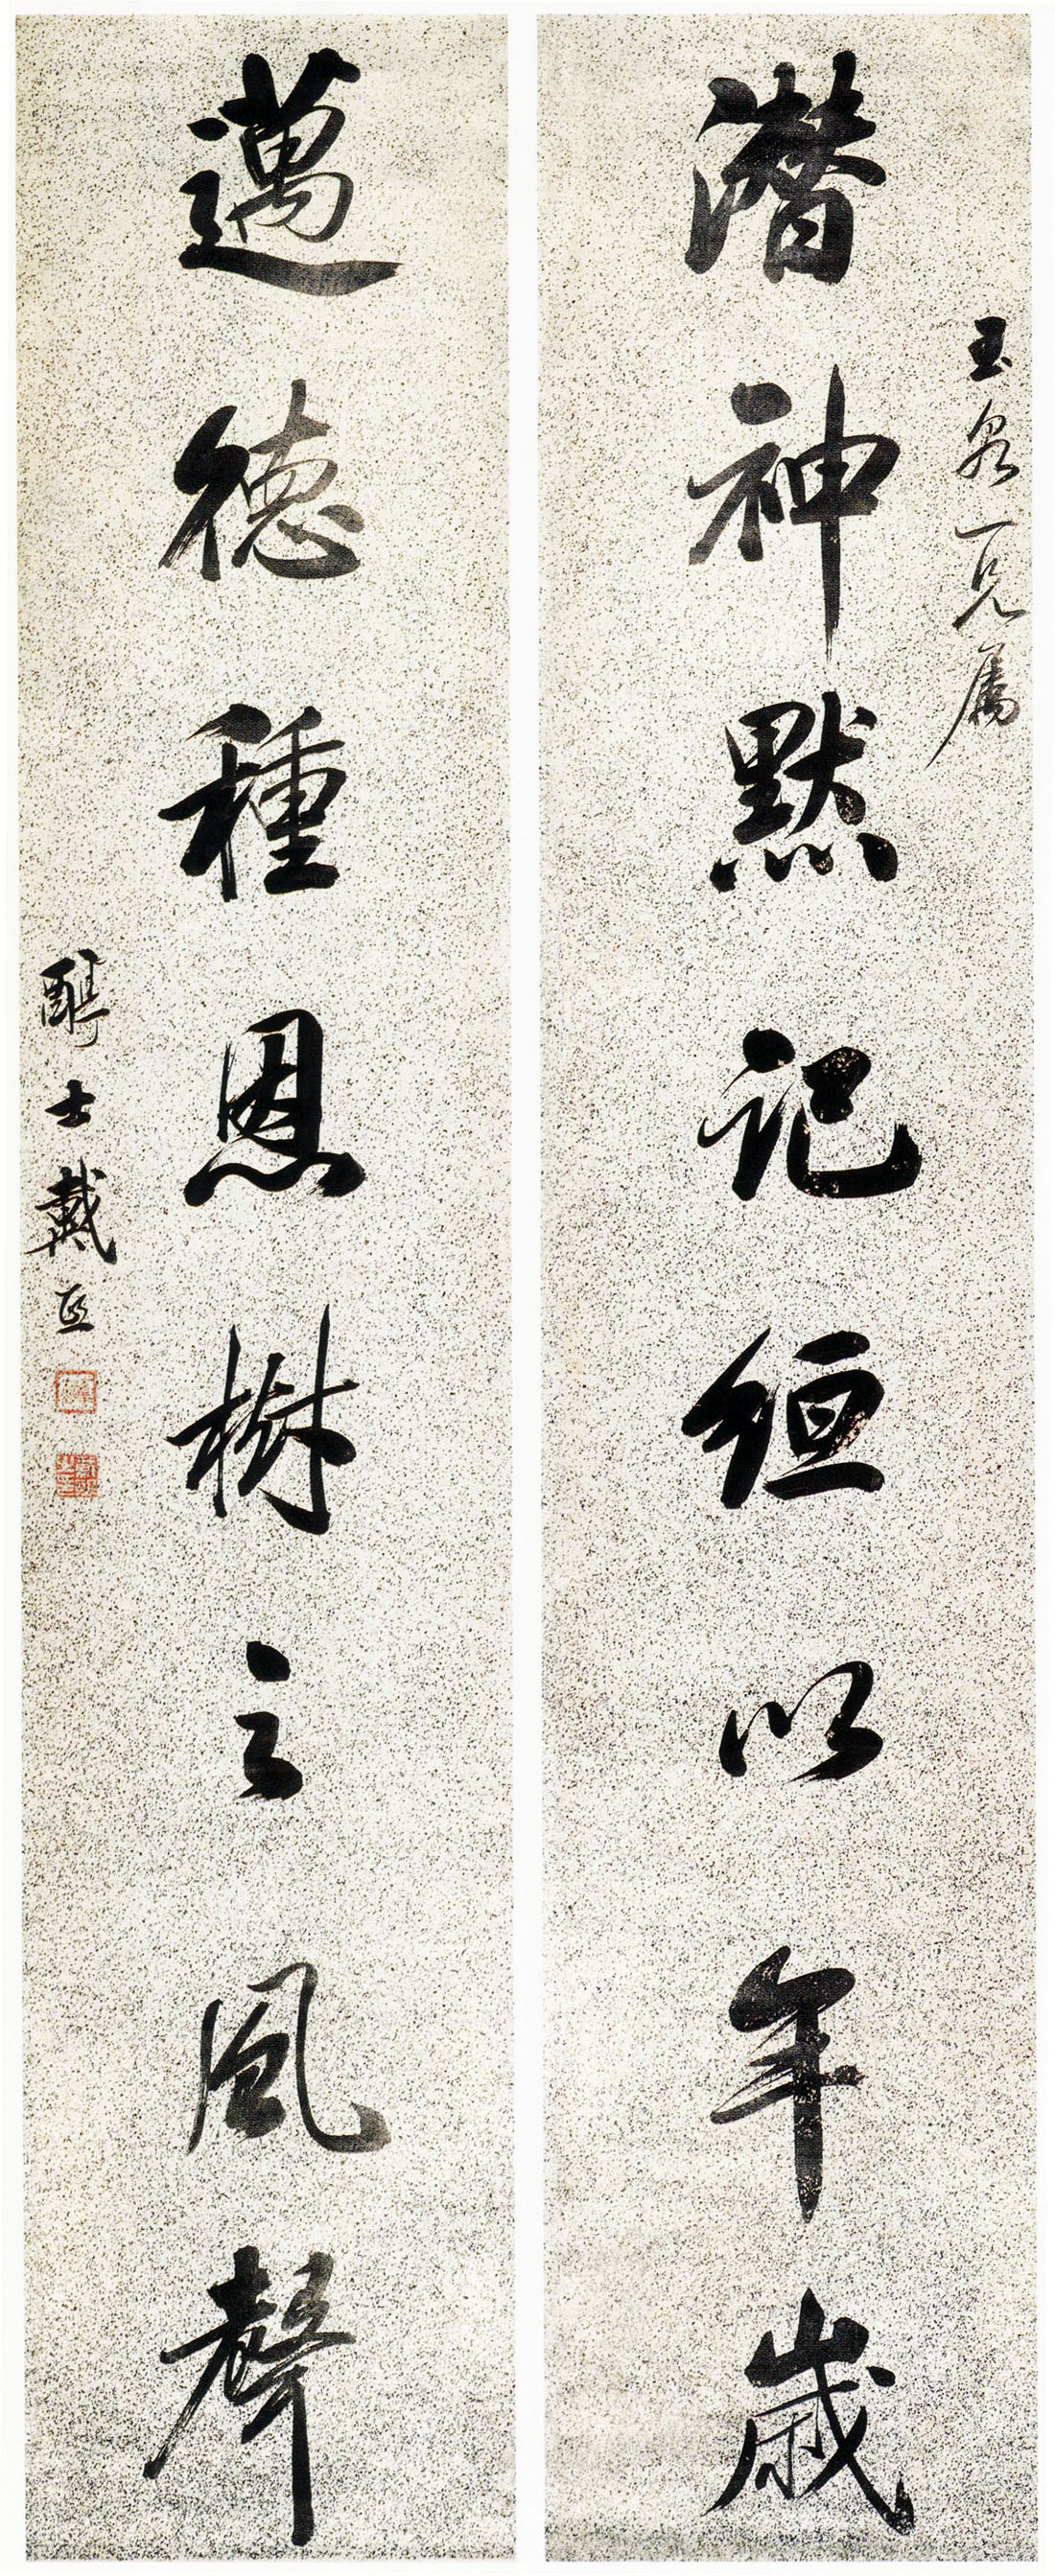 玉泉一兄屬
潜神默記絙以年歲
邁德種恩樹之風聲
醇士戴熙